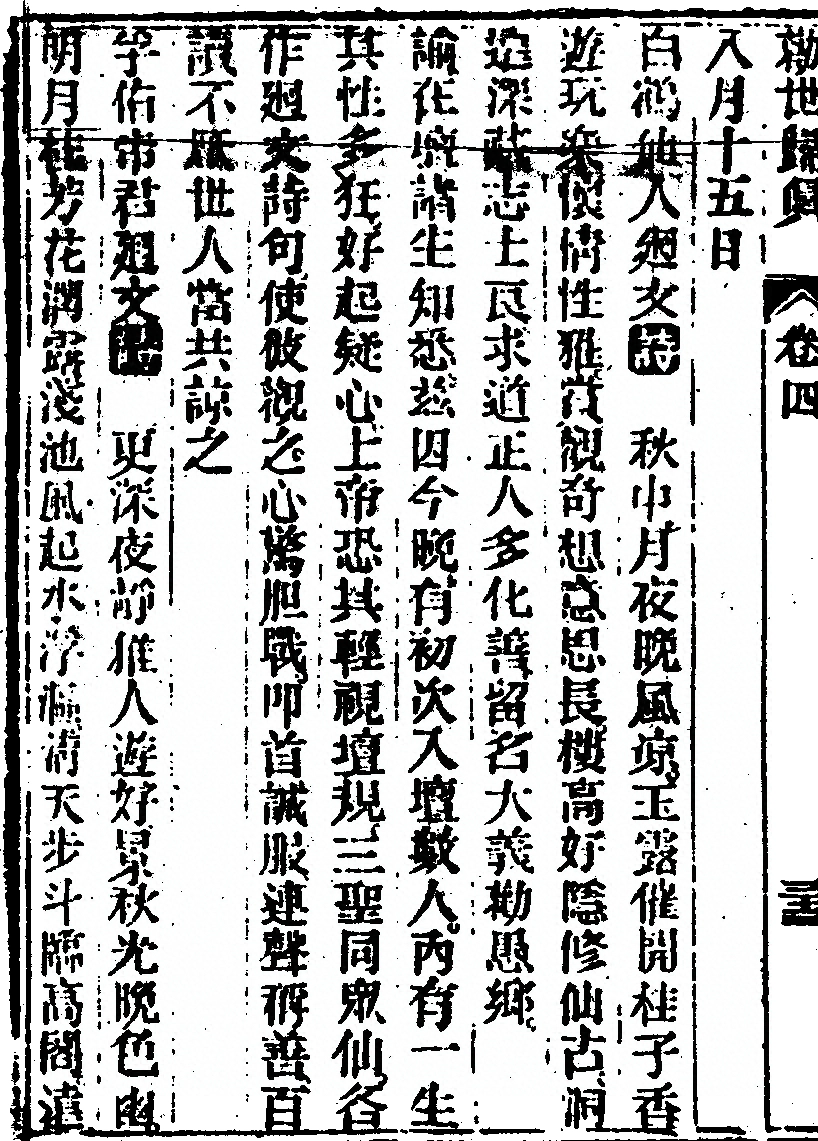 勸世歸真 卷四 三五
八月十五日
白鶴仙人廻文詩 秋中月夜晚風凉玉露催開桂子香
遊玩衆懷情性雅賞觀奇想意思長樓高好隱修仙古洞
遠深藏志士良求道正人多化善留名大義勸愚鄉
諭在壇諸生知悉玆因今晚有初次入壇數人內有一生
其性多狂好起疑心上帝恐其輕視壇規三聖同眾仙各
作廻文詩句使彼觀之心驚胆戰叩首誠服連聲稱善百
讀不厭世人當共諒之
孚佑帝君廻文詩 更深夜靜雅人遊好景秋光晚色幽
明月桂芳花潤露淺池風起水浮極清天步斗臨高閣遠